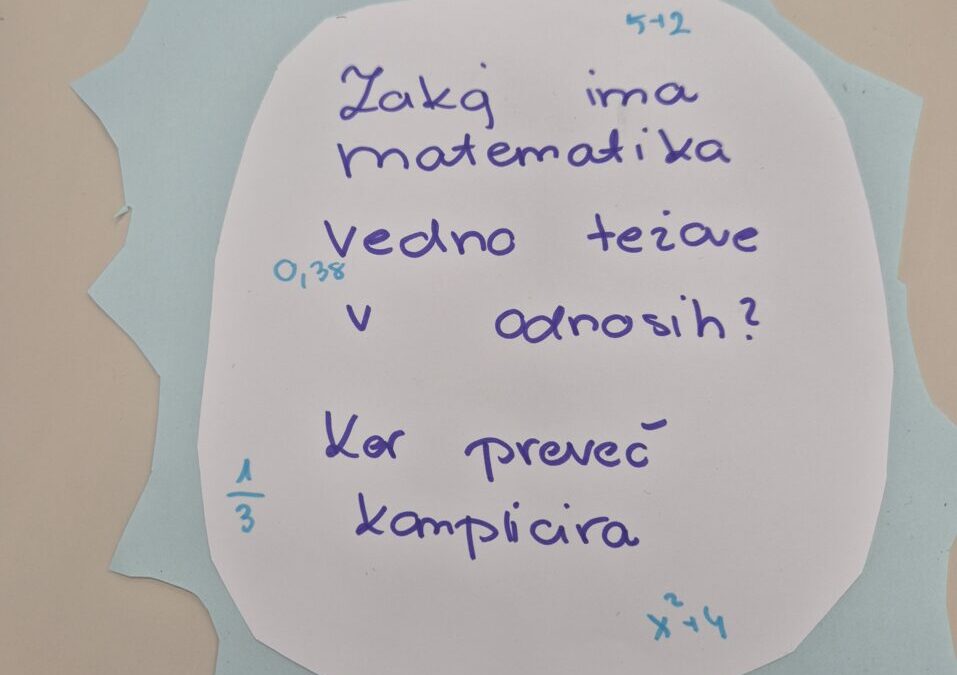 5+2
Zakaj ima
matematika
vedno težave
0,38
v odnosih?
Ker preveč
1/3
komplicira
x²+4